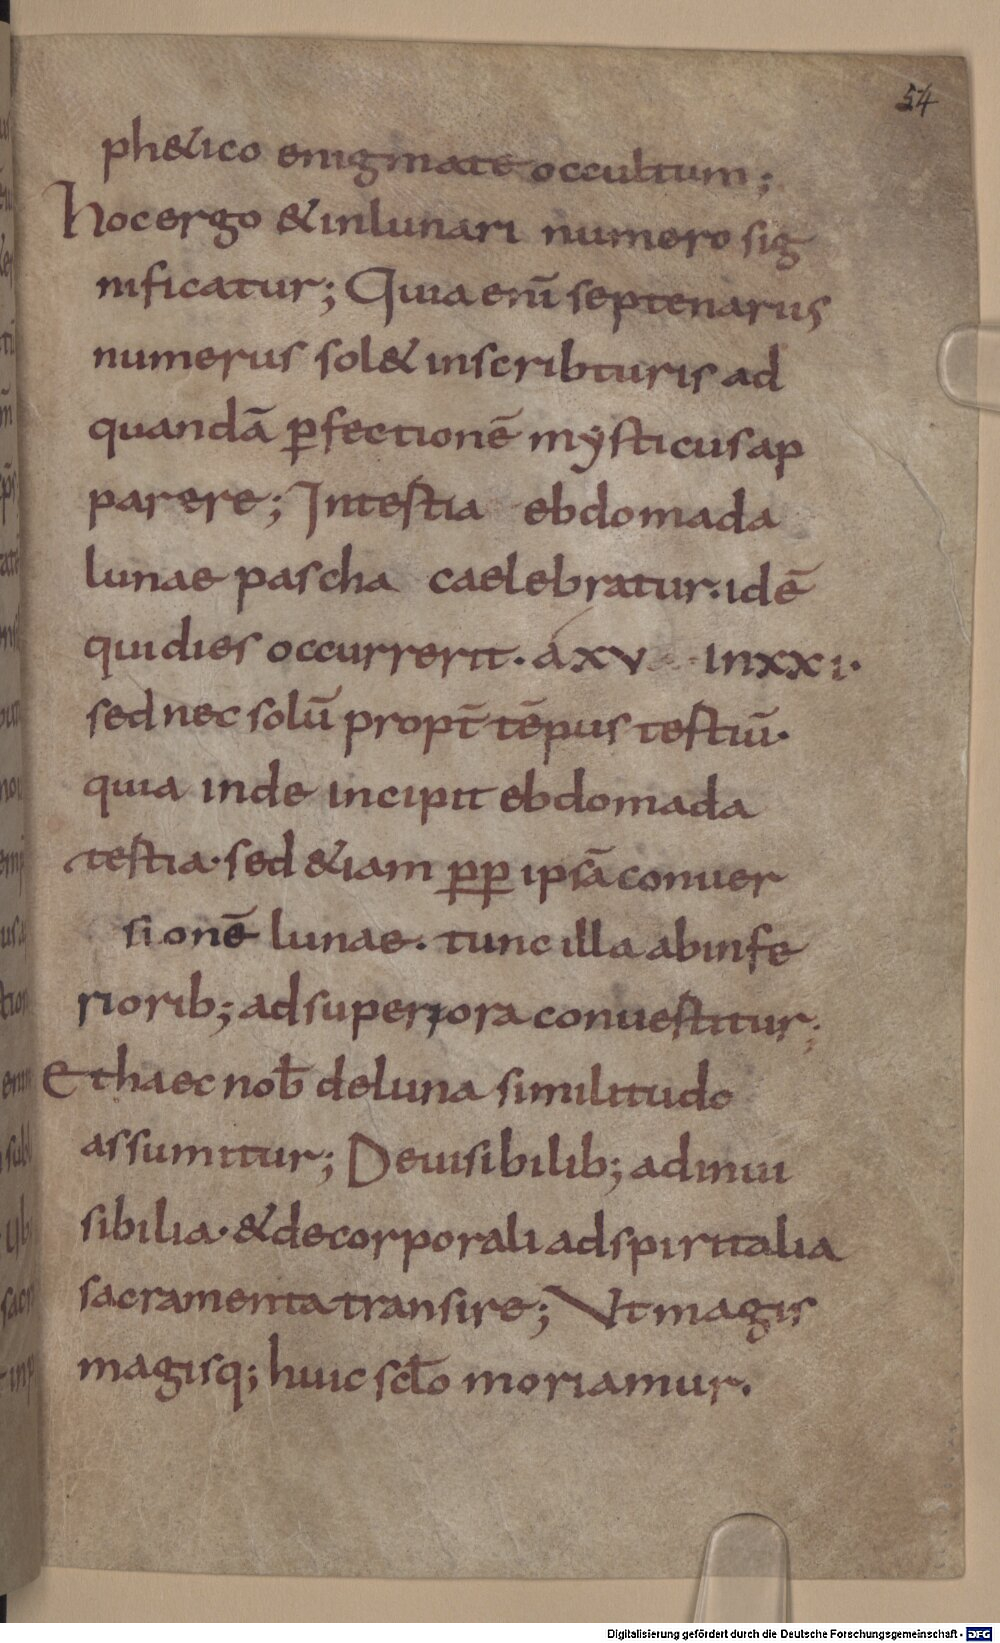 54
ph&ico enigmate occultum;
hocergo &inlunari numero sig
nificatur; Quia eni̅ septenarus
numerus sol& inscribturis ad
quandā ꝑfectionē mẏsticus ap
parere; Intestia ebdomada
lunae pascha caelebratur· idē
qui dies occurrerit· a xv inxxi·
sed nec solū propt̄ tēpus testiū·
quia inde incipit ebdomada
testia· sed &iam ꝑꝑ ipsā conuer
sionē lunae· tunc illa abinfe
riorib; adsuperiora conuestitur;
Et haec nob̄ deluna similitudo
assumitur; Deuisibilib; adinui
sibilia· &decorporali adspiritalia
sacramenta transire; Vt magis
magisq; huic scl̄o moriamur·
Digitalisierung gefördert durch die Deutsche Forschungsgemeinschaft - DFG